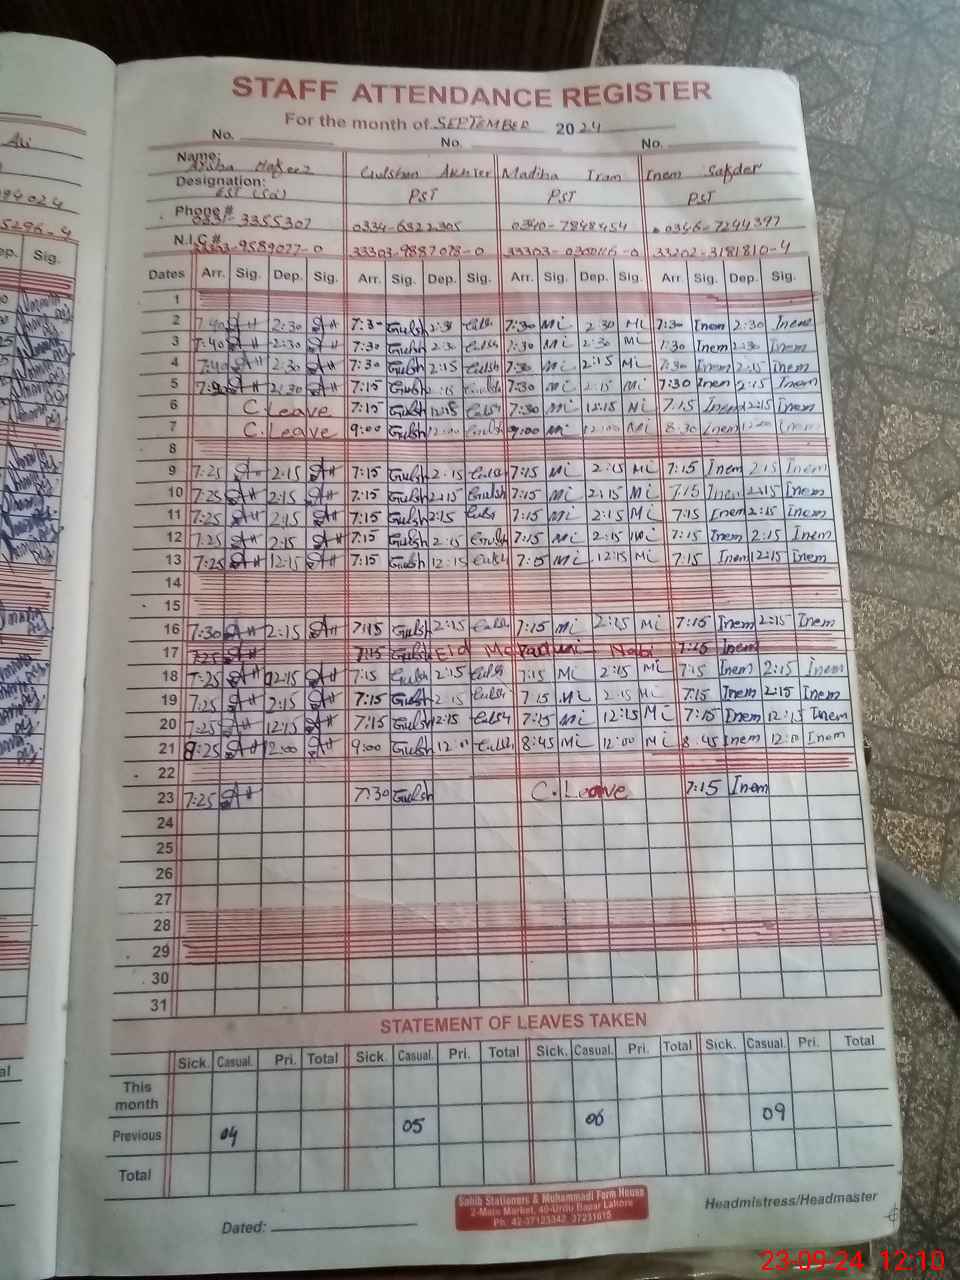 STAFF ATTENDANCE REGISTER
For the month of SEPTEMBER 2024
No. No. No.
Name: Hafeez Gulshan Akhter Madiha Iram Inem Safder
Designation: EST (Sci) PST PST PST
Phone # 0331-3355307 0334-6322305 0340-7848454 0346-7244397
N.I.C # 33303-9589027-0 33303-9887078-0 33303-0360116-0 33202-3181810-4
Dates Arr. Sig. Dep. Sig. Arr. Sig. Dep. Sig. Arr. Sig. Dep. Sig. Arr. Sig. Dep. Sig.
1
2 7:40 AH 2:30 AH 7:30 Gulsh 2:30 Gulsh 7:30 Mi 2:30 Mi 7:30 Inem 2:30 Inem
3 7:40 AH 2:30 AH 7:30 Gulsh 2:30 Gulsh 7:30 Mi 2:30 Mi 7:30 Inem 2:30 Inem
4 7:40 AH 2:30 AH 7:30 Gulsh 2:15 Gulsh 7:30 Mi 2:15 Mi 7:30 Inem 2:15 Inem
5 AH 2:30 AH 7:15 Gulsh 2:15 Gulsh 7:30 Mi 2:15 Mi 7:30 Inem 2:15 Inem
6 C.Leave 7:15 Gulsh 12:15 Gulsh 7:30 Mi 12:15 Mi 7:15 Inem 12:15 Inem
7 C.Leave 9:00 Gulsh 12:00 Gulsh 9:00 Mi 12:00 Mi 8:30 Inem 12:00 Inem
8
9 7:25 AH 2:15 AH 7:15 Gulsh 2:15 Gulsh 7:15 Mi 2:15 Mi 7:15 Inem 2:15 Inem
10 7:25 AH 2:15 AH 7:15 Gulsh 2:15 Gulsh 7:15 Mi 2:15 Mi 7:15 Inem 2:15 Inem
11 7:25 AH 2:15 AH 7:15 Gulsh 2:15 Gulsh 7:15 Mi 2:15 Mi 7:15 Inem 2:15 Inem
12 7:25 AH 2:15 AH 7:15 Gulsh 2:15 Gulsh 7:15 Mi 2:15 Mi 7:15 Inem 2:15 Inem
13 7:25 AH 12:15 AH 7:15 Gulsh 12:15 Gulsh 7:15 Mi 12:15 Mi 7:15 Inem 12:15 Inem
14
15
16 7:30 AH 2:15 AH 7:15 Gulsh 2:15 Gulsh 7:15 Mi 2:15 Mi 7:15 Inem 2:15 Inem
17 7:25 AH 7:15 Gulsh Eid Nabi 7:15 Inem
18 7:25 AH 2:15 AH 7:15 Gulsh 2:15 Gulsh 7:15 Mi 2:15 Mi 7:15 Inem 2:15 Inem
19 7:25 AH 2:15 AH 7:15 Gulsh 2:15 Gulsh 7:15 Mi 2:15 Mi 7:15 Inem 2:15 Inem
20 7:25 AH 12:15 AH 7:15 Gulsh 12:15 Gulsh 7:15 Mi 12:15 Mi 7:15 Inem 12:15 Inem
21 8:25 AH 12:00 AH 9:00 Gulsh 12:00 Gulsh 8:45 Mi 12:00 Mi 8:45 Inem 12:00 Inem
22
23 7:25 AH 7:30 Gulsh C.Leave 7:15 Inem
24
25
26
27
28
29
30
31
STATEMENT OF LEAVES TAKEN
Sick. Casual. Pri. Total Sick. Casual. Pri. Total Sick. Casual. Pri. Total Sick. Casual. Pri. Total
This month
Previous 04 05 06 09
Total
Dated:
Sahib Stationers & Muhammadi Form House
2-Main Market, 40-Urdu Bazar Lahore
Ph. 42-37123342 37231615
Headmistress/Headmaster
23-09-24 12:10